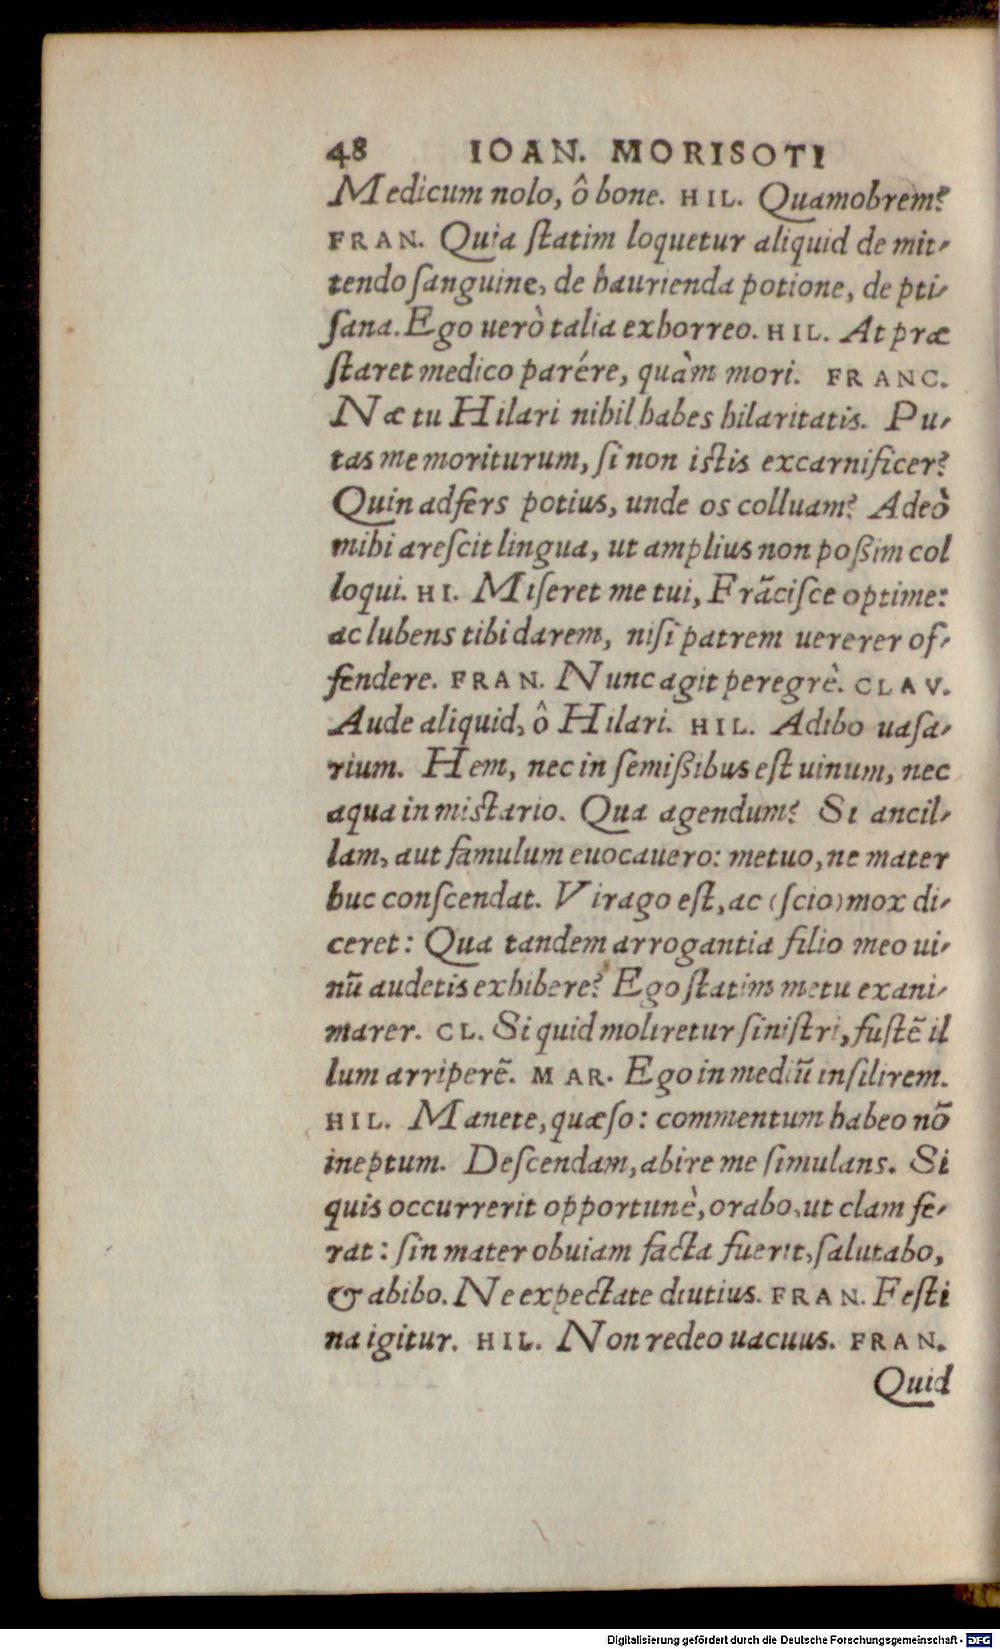 48 IOAN. MORISOTI
Medicum nolo, ô bone. HIL. Quamobrem?
FRAN. Quia ſtatim loquetur aliquid de mit-
tendo ſanguine, de haurienda potione, de pti-
ſana. Ego uerò talia exhorreo. HIL. At præ
ſtaret medico parére, quàm mori. FRANC.
Næ tu Hilari nihil habes hilaritatis. Pu-
tas me moriturum, ſi non iſtis excarnificer?
Quin adfers potius, unde os colluam? Adeò
mihi areſcit lingua, ut amplius non poßim col
loqui. HI. Miſeret me tui, Frãciſce optime:
ac lubens tibi darem, niſi patrem uererer of-
fendere. FRAN. Nunc agit peregrè. CLAV.
Aude aliquid, ô Hilari. HIL. Adibo uaſa-
rium. Hem, nec in ſemißibus eſt uinum, nec
aqua in miſtario. Qua agendum? Si ancil-
lam, aut famulum euocauero: metuo, ne mater
huc conſcendat. Virago eſt, ac (ſcio) mox di-
ceret: Qua tandem arrogantia filio meo ui-
nũ audetis exhibere? Ego ſtatim metu exani-
marer. CL. Si quid moliretur ſiniſtri, fuſtẽ il
lum arriperẽ. MAR. Ego in mediũ inſilirem.
HIL. Manete, quæſo: commentum habeo nõ
ineptum. Deſcendam, abire me ſimulans. Si
quis occurrerit opportunè, orabo, ut clam fe-
rat: ſin mater obuiam facta fuerit, ſalutabo,
& abibo. Ne expectate diutius. FRAN. Feſti
na igitur. HIL. Non redeo uacuus. FRAN.
Quid
Digitalisierung gefördert durch die Deutsche Forschungsgemeinschaft - DFG